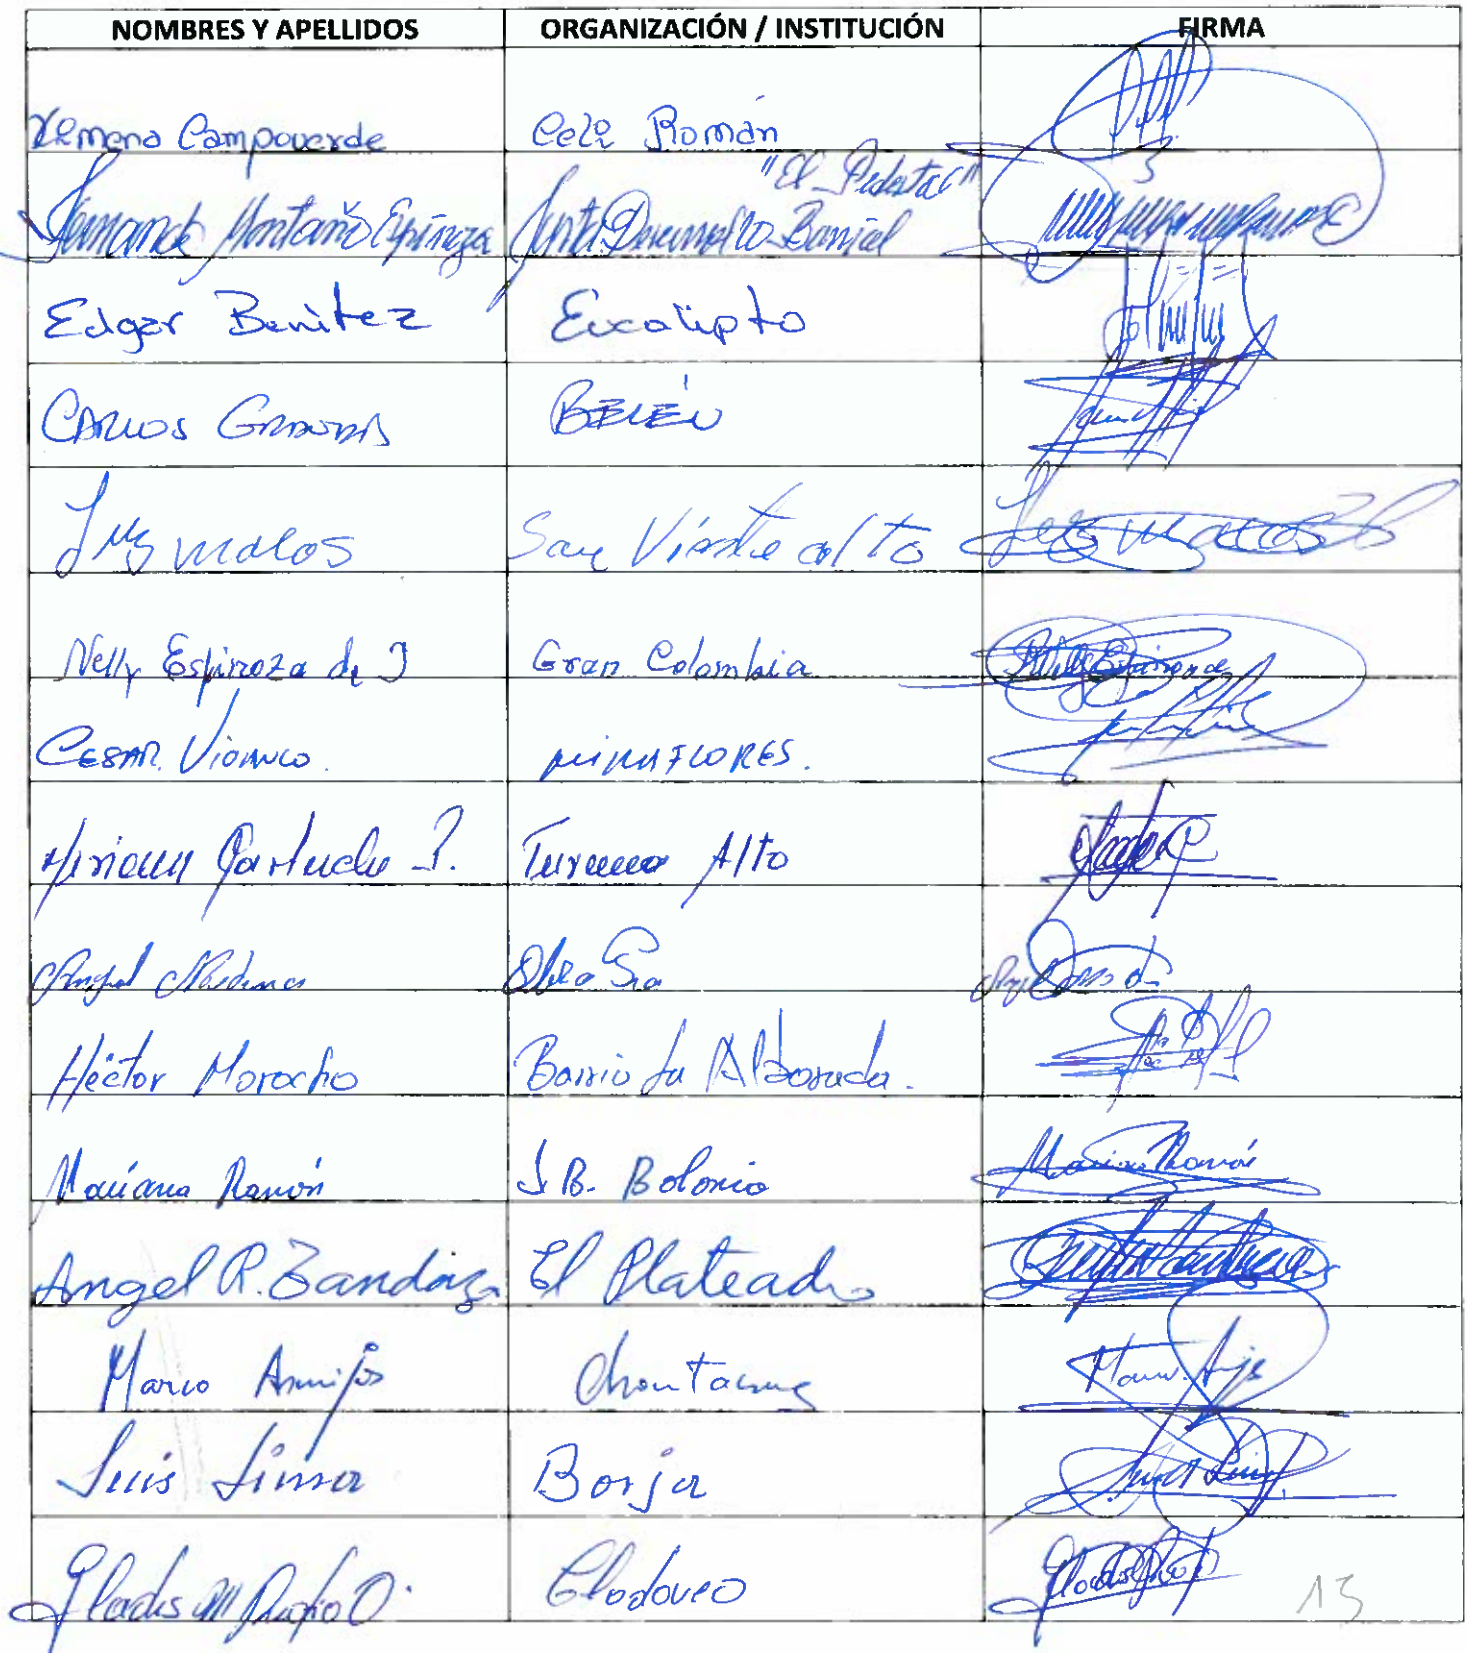 NOMBRES Y APELLIDOS ORGANIZACIÓN / INSTITUCIÓN FIRMA
Ximena Campoverde Celi Román
"El Pedestal"
Montaño Espinoza Junta Desarrollo Barrial
Edgar Benitez Eucalipto
CARLOS GRANDA BELÉN
Luz macas San Vicente alto Luz macas
Nelly Espinoza de J Gran Colombia
CESAR VIVANCO. MIRAFLORES.
Miriam J. Turunuma Alto
Angel Medina Obra Pia
Héctor Morocho Barrio La Alborada.
Mariana Ramón J B. Bolonia Mariana Ramón
Angel R. El Plateado
Marco Armijos Chontacruz
Luis Lima Borja
Gladis M O. Clodoveo
13